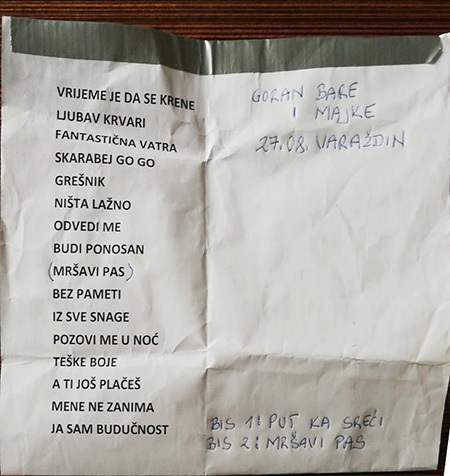 VRIJEME JE DA SE KRENE
LJUBAV KRVARI
FANTASTIČNA VATRA
SKARABEJ GO GO
GREŠNIK
NIŠTA LAŽNO
ODVEDI ME
BUDI PONOSAN
(MRŠAVI PAS)
BEZ PAMETI
IZ SVE SNAGE
POZOVI ME U NOĆ
TEŠKE BOJE
A TI JOŠ PLAČEŠ
MENE NE ZANIMA
JA SAM BUDUČNOST
GORAN BARE
I MAJKE
27.08. VARAŽDIN
BIS 1: PUT KA SREĆI
BIS 2: MRŠAVI PAS